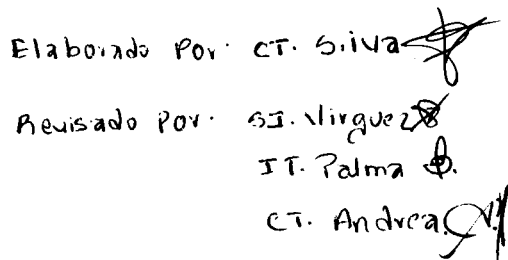 Elaborado Por. CT. Silva
Revisado Por. SI. Virguez
IT. Palma
CT. Andrea.